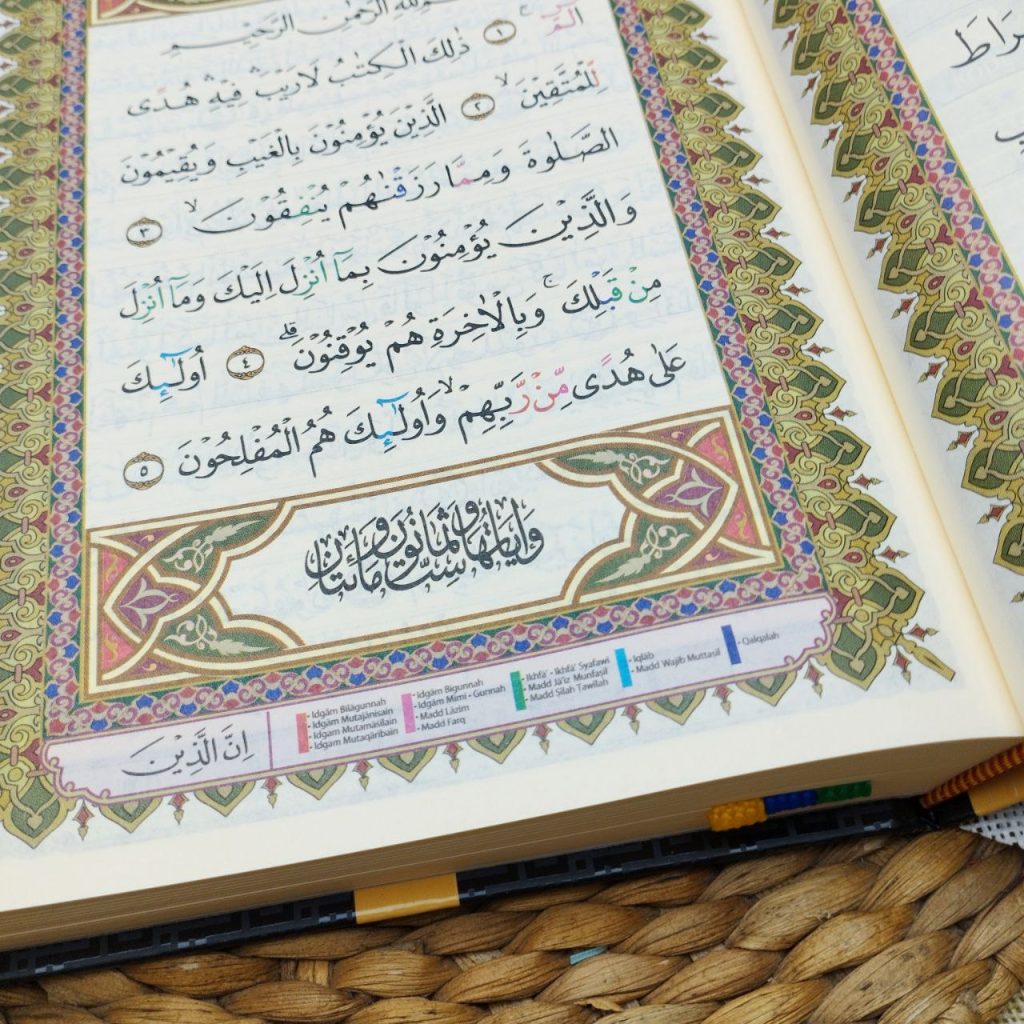 بِسْمِ اللّٰهِ الرَّحْمٰنِ الرَّحِيْمِ
الۤمّۤ ۚ ١ ذٰلِكَ الْكِتٰبُ لَا رَيْبَ ۛ فِيْهِ ۛ هُدًى
لِّلْمُتَّقِيْنَ ۙ ٢ الَّذِيْنَ يُؤْمِنُوْنَ بِالْغَيْبِ وَيُقِيْمُوْنَ
الصَّلٰوةَ وَمِمَّا رَزَقْنٰهُمْ يُنْفِقُوْنَ ۙ ٣
وَالَّذِيْنَ يُؤْمِنُوْنَ بِمَآ اُنْزِلَ اِلَيْكَ وَمَآ اُنْزِلَ
مِنْ قَبْلِكَ ۚ وَبِالْاٰخِرَةِ هُمْ يُوْقِنُوْنَ ۗ ٤ اُولٰۤىِٕكَ
عَلٰى هُدًى مِّنْ رَّبِّهِمْ ۙ وَاُولٰۤىِٕكَ هُمُ الْمُفْلِحُوْنَ ٥
وَاٰيَاتُهَا سِتٌّ وَثَمَانُوْنَ وَمِائَتَانِ
- Idgām Bilāgunnah
- Idgām Mutajānisain
- Idgam Mutamāsilain
- Idgam Mutaqāribain
- Idgām Bigunnah
- Idgām Mimi - Gunnah
- Madd Lāzim
- Madd Farq
- Ikhfā' - Ikhfā' Syafawi
- Madd Jā'iz Munfaṣil
- Madd Ṣilah Ṭawīlah
- Iqlāb
- Madd Wajib Muttaṣil
- Qalqalah
اِنَّ الَّذِيْنَ
رَاطَ